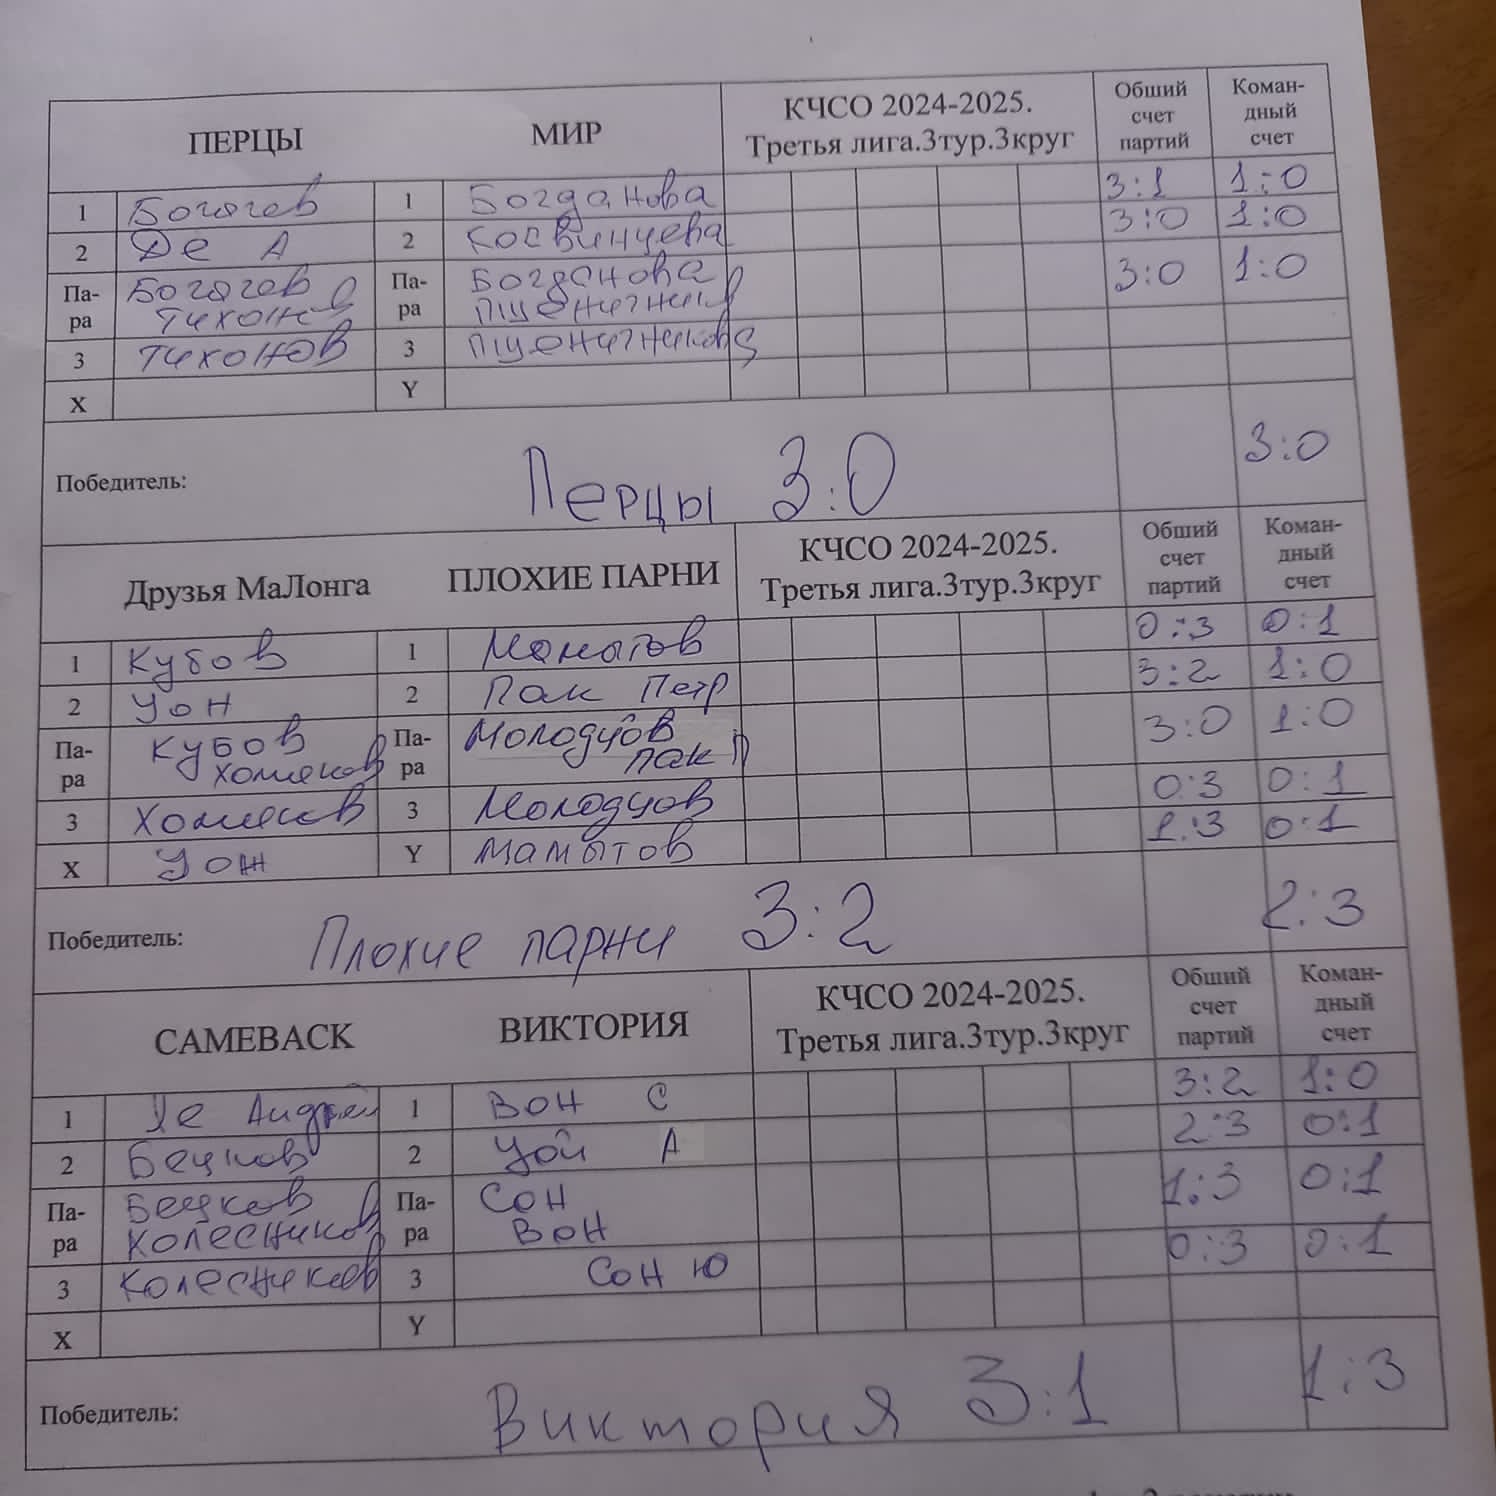 ПЕРЦЫ МИР КЧСО 2024-2025. Третья лига.3тур.3круг Обший счет партий Коман-дный счет
1 Богачев 1 Богданова 3:1 1:0
2 Де А 2 Косвинцева 3:0 1:0
Па-ра Богачев Тихонов Па-ра Богданова 3:0 1:0
3 Тихонов 3 Пшеничникова
X Y
3:0
Победитель: Перцы 3:0
Друзья МаЛонга ПЛОХИЕ ПАРНИ КЧСО 2024-2025. Третья лига.3тур.3круг Обший счет партий Коман-дный счет
1 Кубов 1 Мамытов 0:3 0:1
2 2 Пак Петр 3:2 1:0
Па-ра Кубов Хомяков Па-ра Молодцов Пак П 3:0 1:0
3 Хомяков 3 Молодцов 0:3 0:1
X Y Мамытов 1:3 0:1
2:3
Победитель: Плохие парни 3:2
CAMEBACK ВИКТОРИЯ КЧСО 2024-2025. Третья лига.3тур.3круг Обший счет партий Коман-дный счет
1 Андрей 1 Вон С 3:2 1:0
2 Бецков 2 Цой А 2:3 0:1
Па-ра Бецков Колесников Па-ра Сон Вон 1:3 0:1
3 Колесников 3 Сон Ю 0:3 0:1
X Y
1:3
Победитель: Виктория 3:1